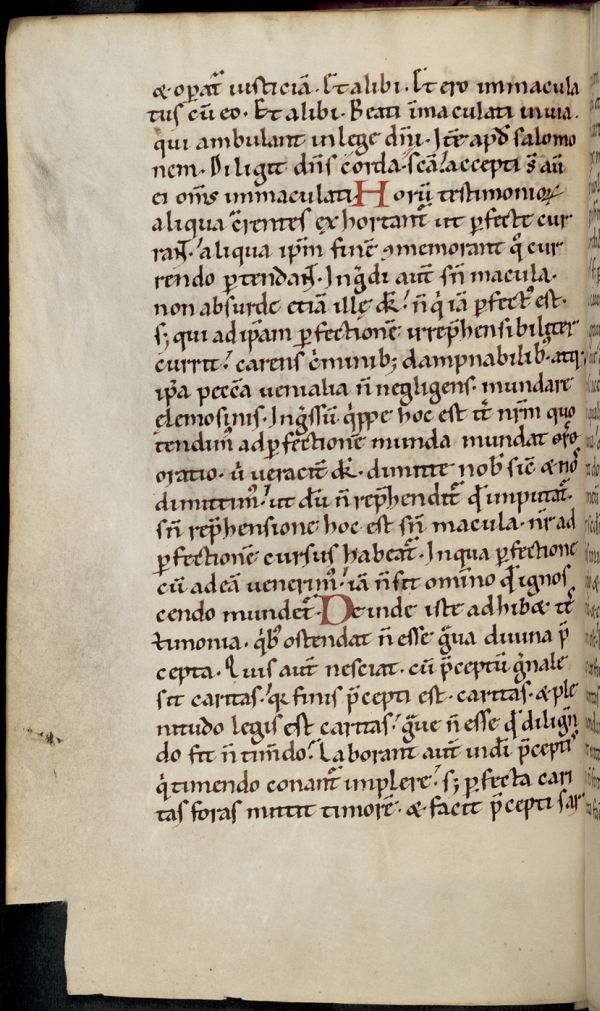 & op̄at̄ iusticiā. Et alibi. Et ero immacula
tus cū eo. Et alibi. Beati īmaculati in uia.
qui ambulant in lege dn̄i. Itē apd̄ salomo
nem. Diligit dn̄s corda. sc̄a. accepti s̄ aū
ei om̄s immaculati. Horū testimonioꝝ
aliqua c̄rentes exhortant̄ ut ꝑfecte cur
rant̄. aliqua ip̄m finē ꝯmemorant qͦ cur
rendo ꝑtendant̄. Ingͣdi aut̄ sn̄ macula.
non absurde etiā ille dr̄. n̄ qͥ iā ꝑfect᷒ est.
s; qui ad ip̄am ꝑfectionē irrep̄hensibilit̄er
currit. carens cͥminib; dampnabilib;. atq;
ip̄a pecc̄a uenialia n̄ negligens. mundare
elemosinis. Ingͣssū qͥppe hoc est it̄ nr̄m quo
tendim᷒ ad ꝑfectionē munda mundat
oratio. ū ueracit̄ dr̄. dimitte nob̄ sic̄ & nos
dimittim᷒. ut dū n̄ rep̄hendit̄ qd̄ imputat̄.
sn̄ rep̄hensione hoc est sn̄ macula. nr̄ ad
ꝑfectionē cursus habeat̄. In qua ꝑfectione
cū ad eā uenerim᷒. iā n̄ sit om̄ino qd̄ ignos
cendo mundet̄. Deinde iste adhib& tes
timonia. qͥb; ostendat n̄ esse gͣua diuina p̄
cepta. Quis aut̄ nesciat. cū p̄ceptū gn̄ale
sit caritas. qͥa finis p̄cepti est. caritas. & ple
nitudo legis est caritas. gͣue n̄ esse qd̄ diligen̄
do fit n̄ tim̄do. Laborant aut̄ in di p̄ceptis
qͥ timendo conant̄ implere. s; ꝑfecta cari
tas foras mittit timorē. & facit p̄cepti sar